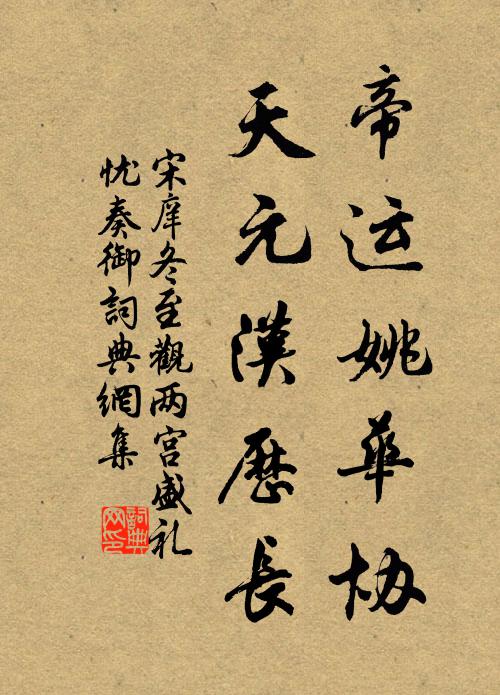 帝运姚華协
天元漢歷長
宋庠冬至觀两宫盛礼
忧奏御詞典網集
詞典
网印